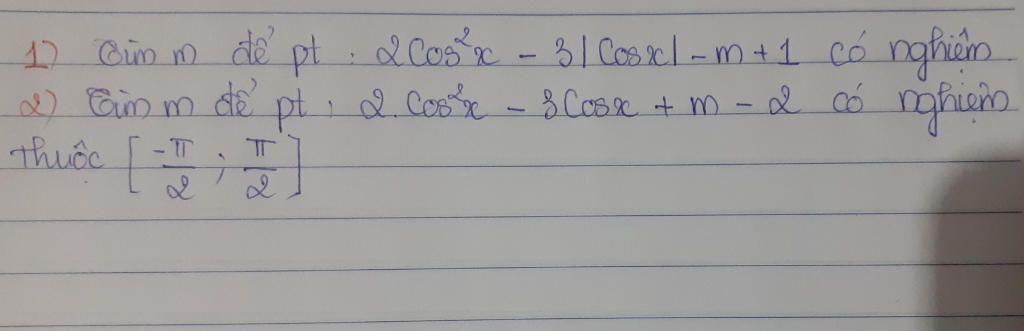 1) Tìm m để pt : 2Cos²x - 3|Cosx| - m + 1 có nghiệm
2) Tìm m để pt : 2.Cos²x - 3Cosx + m - 2 có nghiệm
thuộc [-π/2 ; π/2]